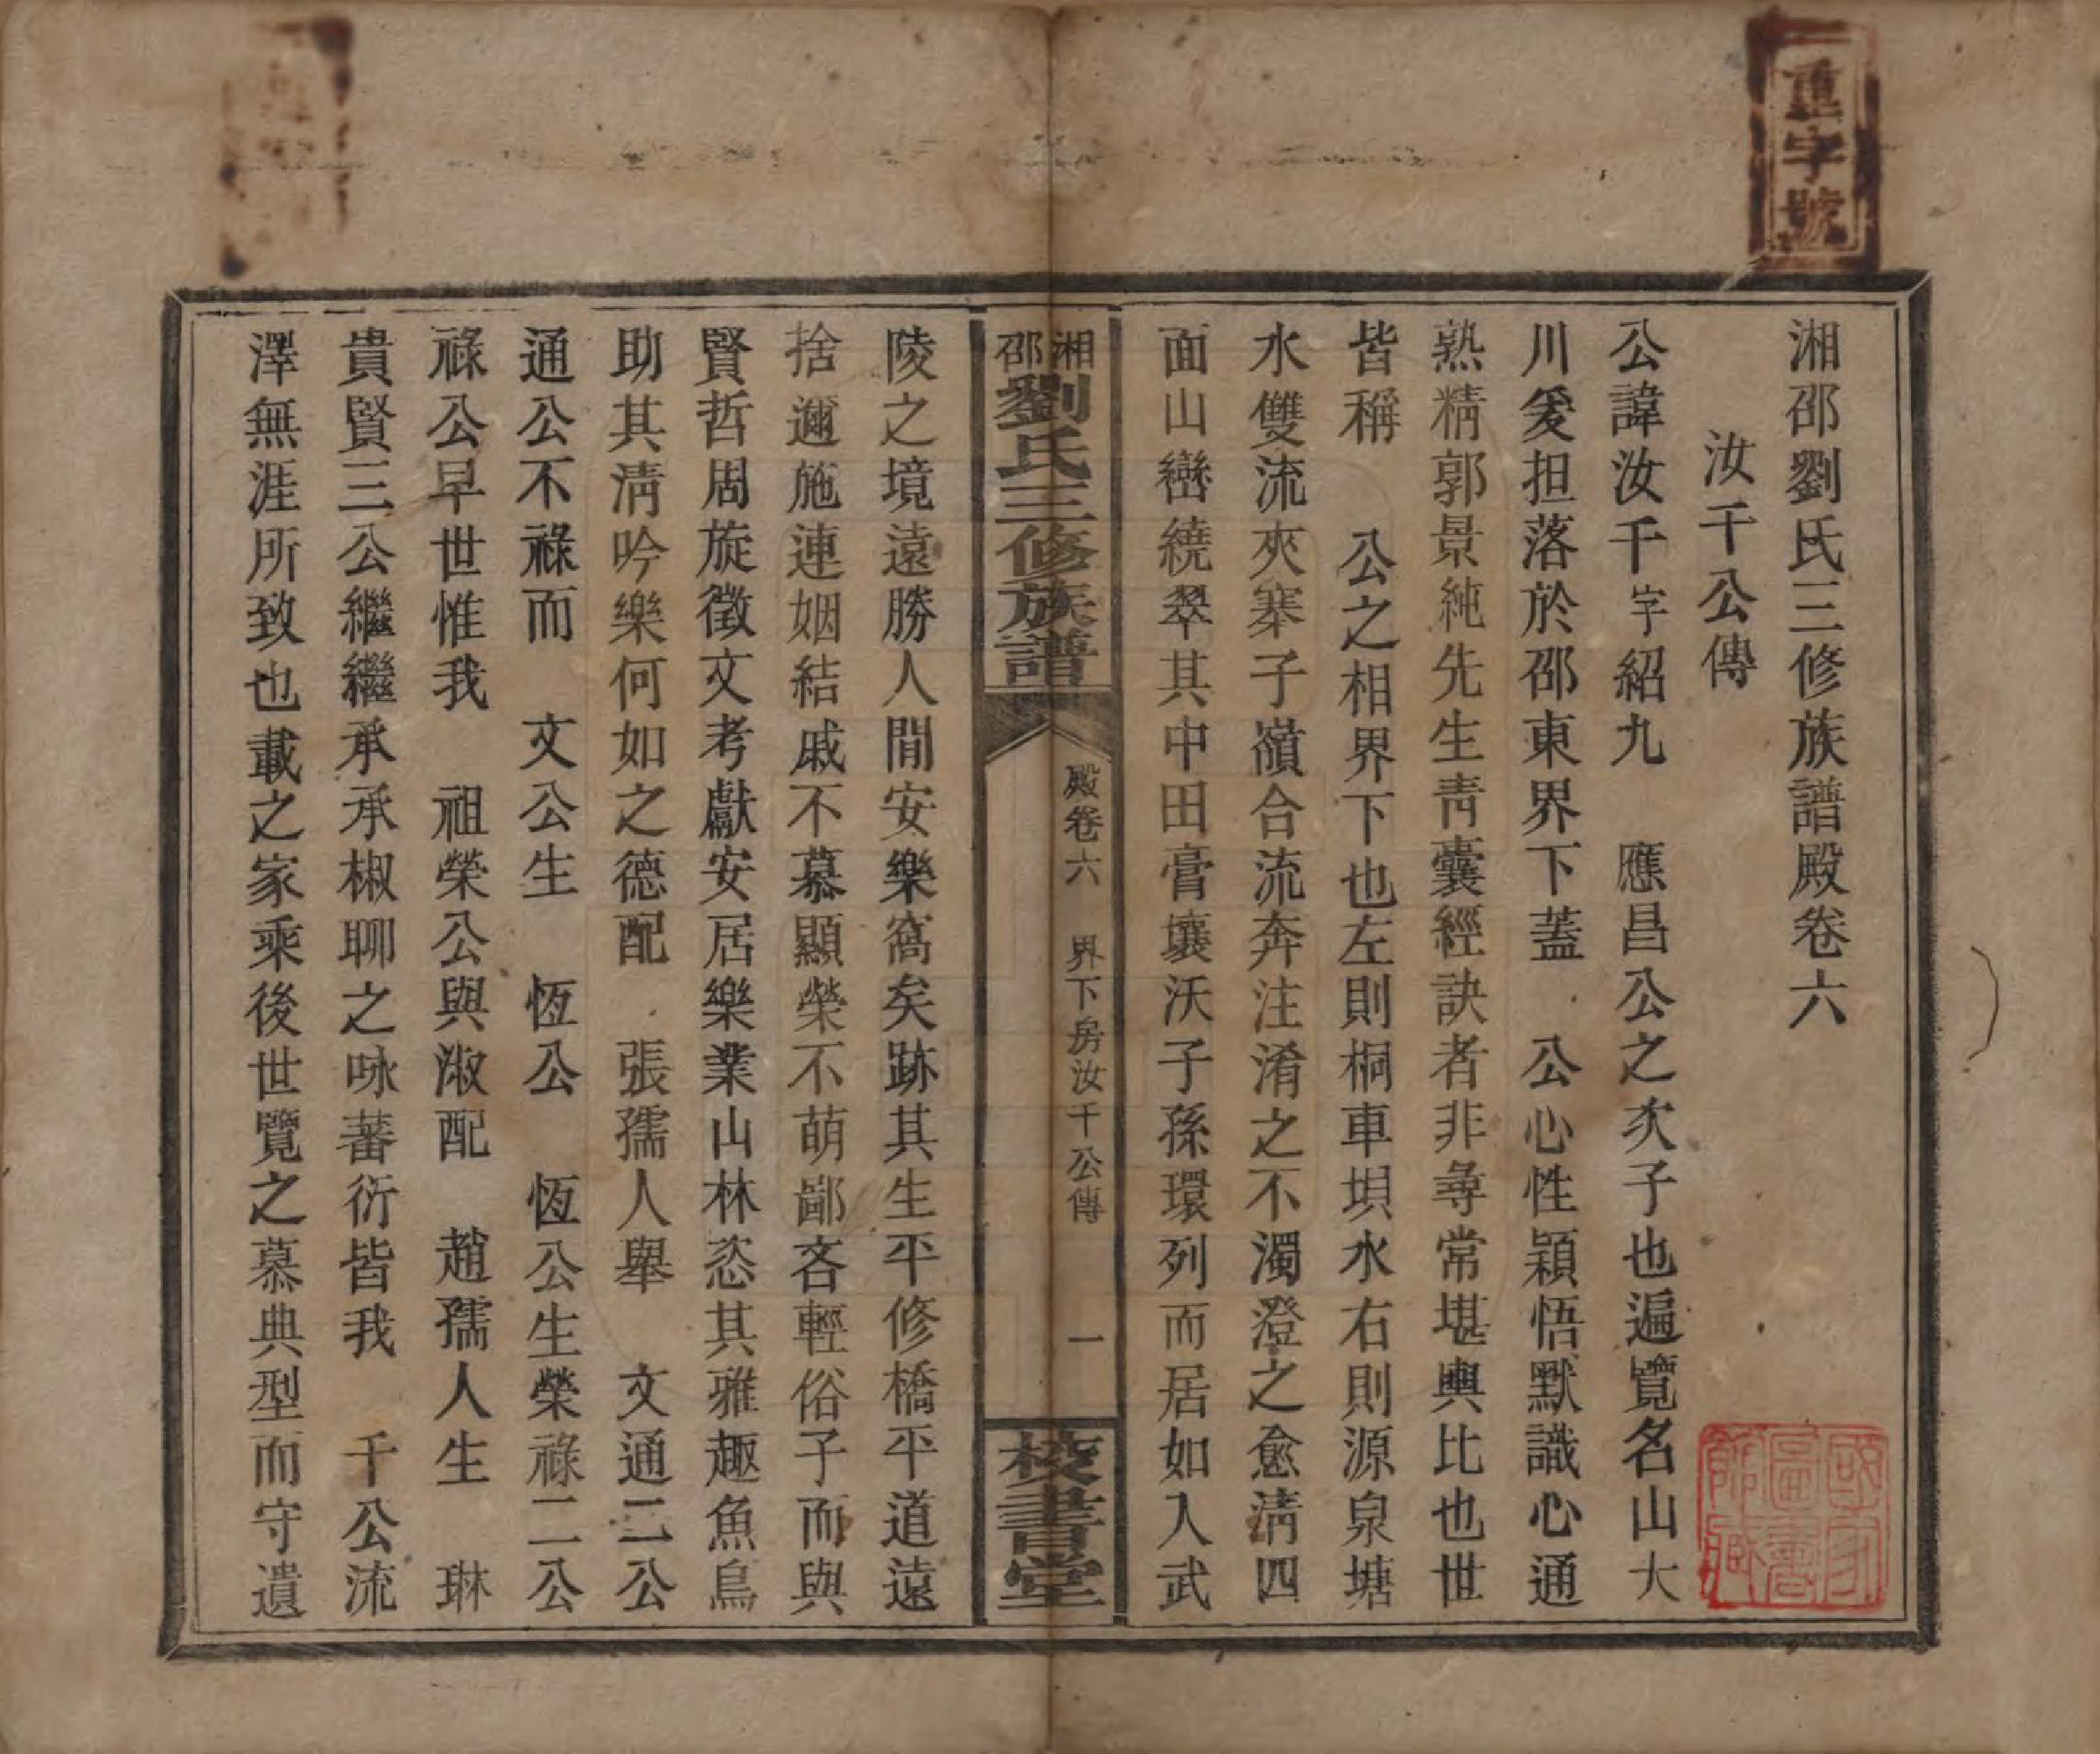 重字號
湘邵劉氏三修族譜殿卷六
汝千公傳
公諱汝千字紹九　應昌公之次子也遍覽名山大
川爰担落於邵東界下蓋　公心性穎悟默識心通
熟精郭景純先生靑囊經訣者非尋常堪輿比也世
皆稱　公之相界下也左則桐車垻水右則源泉塘
水雙流夾寨子嶺合流奔注淆之不濁澄之愈淸四
面山巒繞翠其中田膏壤沃子孫環列而居如入武
湘邵劉氏三修族譜
殿卷六　界下房汝千公傳　一
校書堂
陵之境遠勝人間安樂窩矣跡其生平修橋平道遠
捨邇施連姻結戚不慕顯榮不萌鄙吝輕俗子而與
賢哲周旋徵文考獻安居樂業山林恣其雅趣魚鳥
助其淸吟樂何如之德配　張孺人舉　文通二公
通公不祿而　文公生　恆公　恆公生榮祿二公
祿公早世惟我　祖榮公與淑配　趙孺人生　琳
貴賢三公繼繼承承椒聊之咏蕃衍皆我　千公流
澤無涯所致也載之家乘後世覽之慕典型而守遺
國家圖書館藏